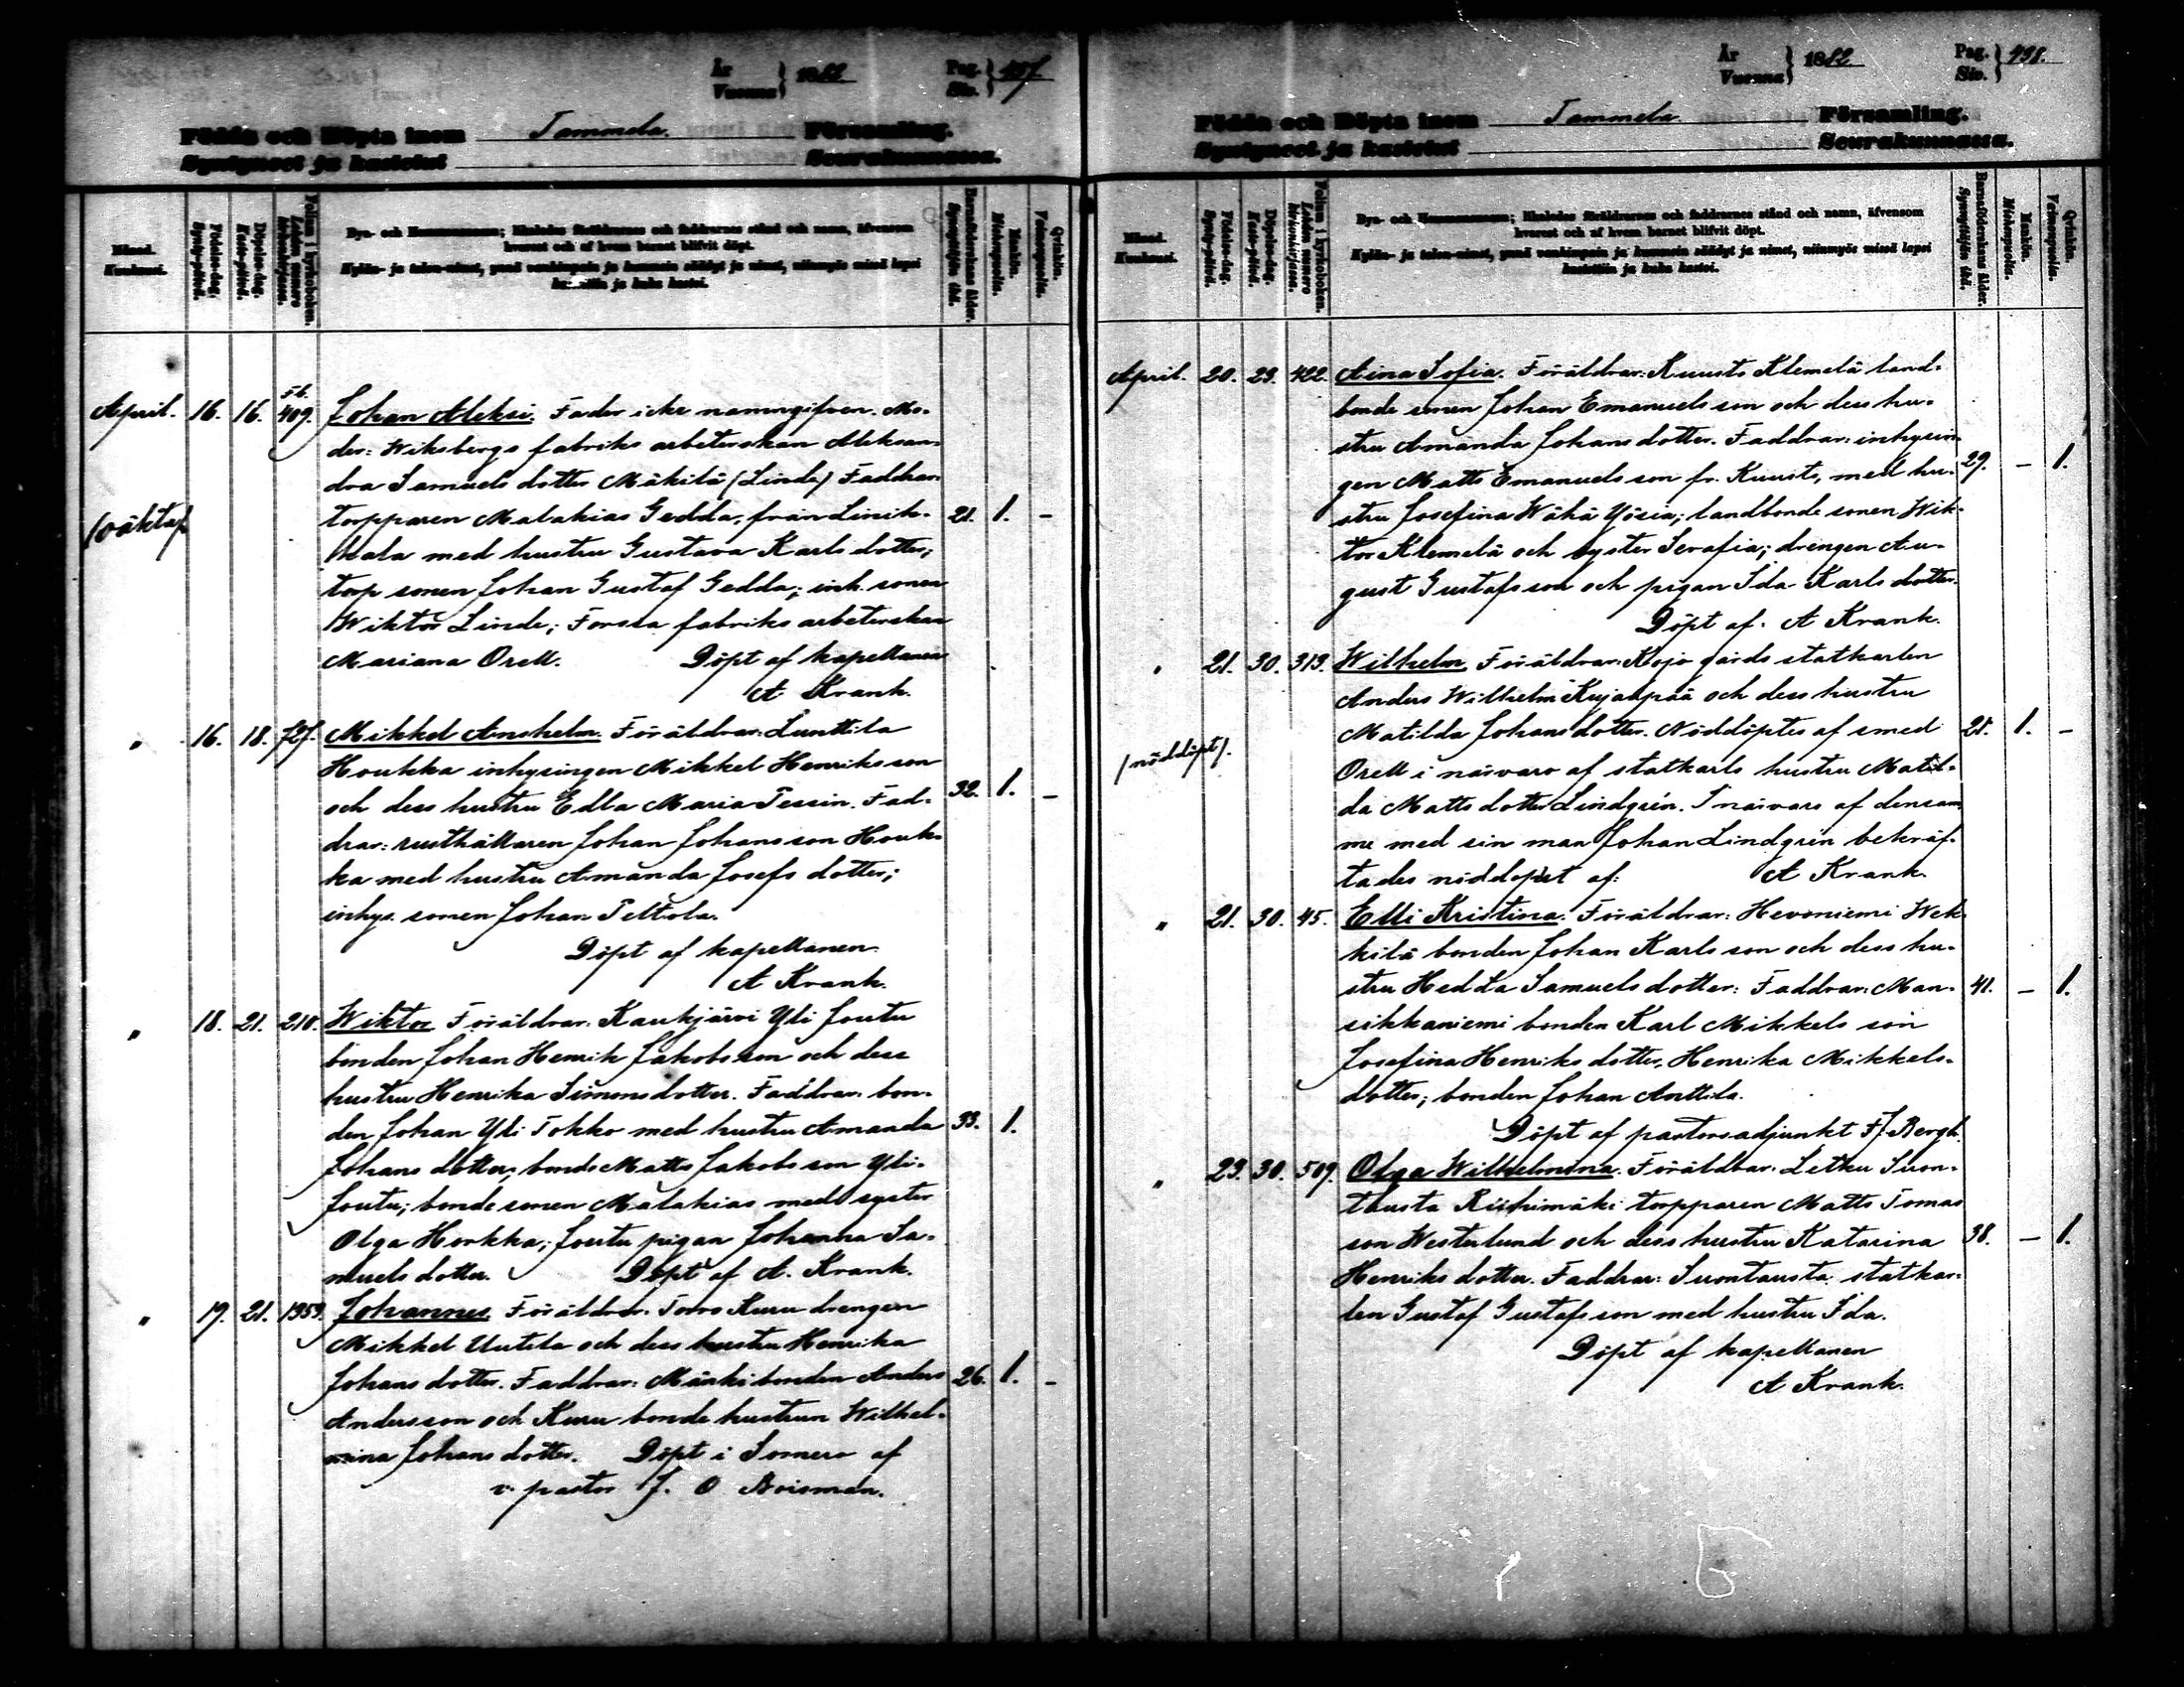 År
Vuonna } 1882
Pag.
Siv. } 497
Födda och Döpta inom Tammela Församling.
Syntyneet ja kastetut Seurakunnassa.
Månad.
Kuukausi.
Födelse-dag.
Synty-päivä.
Döpelse-dag.
Kaste-päivä.
Folium i kyrkoboken.
Lehden numero kirkonkirjassa.
Bya- och Hemmansnamn; likaledes föräldrarnes och faddrarnes stånd och namn, äfvensom
hvarest och af hvem barnet blifvit döpt.
Kylän- ja talon-nimet, ynnä vanhinpain ja kummein säädyt ja nimet, niinmyös missä lapsi
kastettiin ja kuka kastoi.
Barnaföderskans ålder.
Synnyttäjän ikä.
Mankön.
Miehenpuolia.
Qvinkön.
Vaimonpuolia.
April. 16. 16. 409. Johan Aleksi. Fader icke namngifven. Mo-
der: Wiksbergs fabriks arbeterskan Aleksan-
dra Samuels dotter Mäkilä (Linde) Faddrar:
(oäkta) torpparen Malakias Gedda, från Linik- 21. 1. -
kala med hustru Gustava Karls dotter;
torp sonen Johan Gustaf Gedda; inh. sonen
Wiktor Linde; Forssa fabriks arbeterskan
Mariana Orell. Döpt af kapellanen
A Krank.
" 16. 18. 727. Mikkel Anshelm. Föräldrar: Lunttila
Houkka inhysingen Mikkel Henriksson
och dess hustru Edla Maria Tessin. Fad- 32. 1. -
drar: rusthållaren Johan Johansson Houk-
ka med hustru Amanda Josefs dotter;
inhys. sonen Johan Peltola.
Döpt af kapellanen
A Krank.
" 18. 21. 210. Wiktor Föräldrar. Kaukjärvi Yli Joutu
bonden Johan Henrik Jakobsson och dess
hustru Henrika Simonsdotter. Faddrar: bon-
den Johan Yli Tokko med hustru Amanda 33. 1.
Johans dotter; bonde Matts Jakobsson Yli-
Joutu; bonde sonen Malakias med syster
Olga Horkka; Joutu pigan Johanna Sa-
muels dotter. Döpt af A. Krank.
" 19. 21. 1359. Johannes Föräldrar. Torro Kuru drengen
Mikkel Uutela och dess hustru Henrika
Johans dotter. Faddrar: Mänki bonden Anders 26. 1. -
Andersson och Kuru bonde hustrun Wilhel-
mina Johans dotter. Döpt i Somero af
v. pastor J. O Boisman.
År
Vuonna } 1882
Pag.
Siv. } 498.
Födda och Döpta inom Tammela Församling.
Syntyneet ja kastetut Seurakunnassa.
Månad.
Kuukausi.
Födelse-dag.
Synty-päivä.
Döpelse-dag.
Kaste-päivä.
Folium i kyrkoboken.
Lehden numero kirkonkirjassa.
Bya- och Hemmansnamn; likaledes föräldrarnes och faddrarnes stånd och namn, äfvensom
hvarest och af hvem barnet blifvit döpt.
Kylän- ja talon-nimet, ynnä vanhinpain ja kummein säädyt ja nimet, niinmyös missä lapsi
kastettiin ja kuka kastoi.
Barnaföderskans ålder.
Synnyttäjän ikä.
Mankön.
Miehenpuolia.
Qvinkön.
Vaimonpuolia.
April. 20. 23. 422. Aina Sofia. Föräldrar: Kuusto Klemelä land-
bonde sonen Johan Emanuels son och dess hu-
stru Amanda Johans dotter. Faddrar: inhysin-
gen Matts Emanuels son fr. Kuusto, med hu- 29. - 1.
stru Josefina Wähä Yösiä; landbonde sonen Wik-
tor Klemelä och syster Serafia; drengen Au-
gust Gustafsson och pigan Ida Karls dotter.
Döpt af. A Krank.
" 21. 30. 313. Wilhelm. Föräldrar: Kojo gårds statkarlen
Anders Wilhelm Kujanpää och dess hustru
(nöddöpt). Matilda Johans dotter. Nöddöptes af smed 25. 1. -
Orell i närvaro af statkarls hustru Matil-
da Matts dotter Lindgrén. I närvaro af densam
me med sin man Johan Lindgrén bekräf-
tades nöddopet af: A Krank.
" 21. 30. 45. Elli Kristina. Föräldrar: Hevoniemi Wek-
kilä bonden Johan Karls son och dess hu-
stru Hedda Samuels dotter: Faddrar: Man- 41. - 1.
sikkaniemi bonden Karl Mikkels son
Josefina Henriks dotter, Henrika Mikkels-
dotter; bonden Johan Anttila.
Döpt af pastorsadjunkt F J Bergh.
" 23. 30. 509. Olga Wilhelmina. Föräldrar. Letku Suon-
tausta Riihimäki torpparen Matts Tomas
son Westerlund och dess hustru Katarina 38. - 1.
Henriks dotter. Faddrar: Suontausta statkar-
len Gustaf Gustafs son med hustru Ida.
Döpt af kapellanen
A Krank.